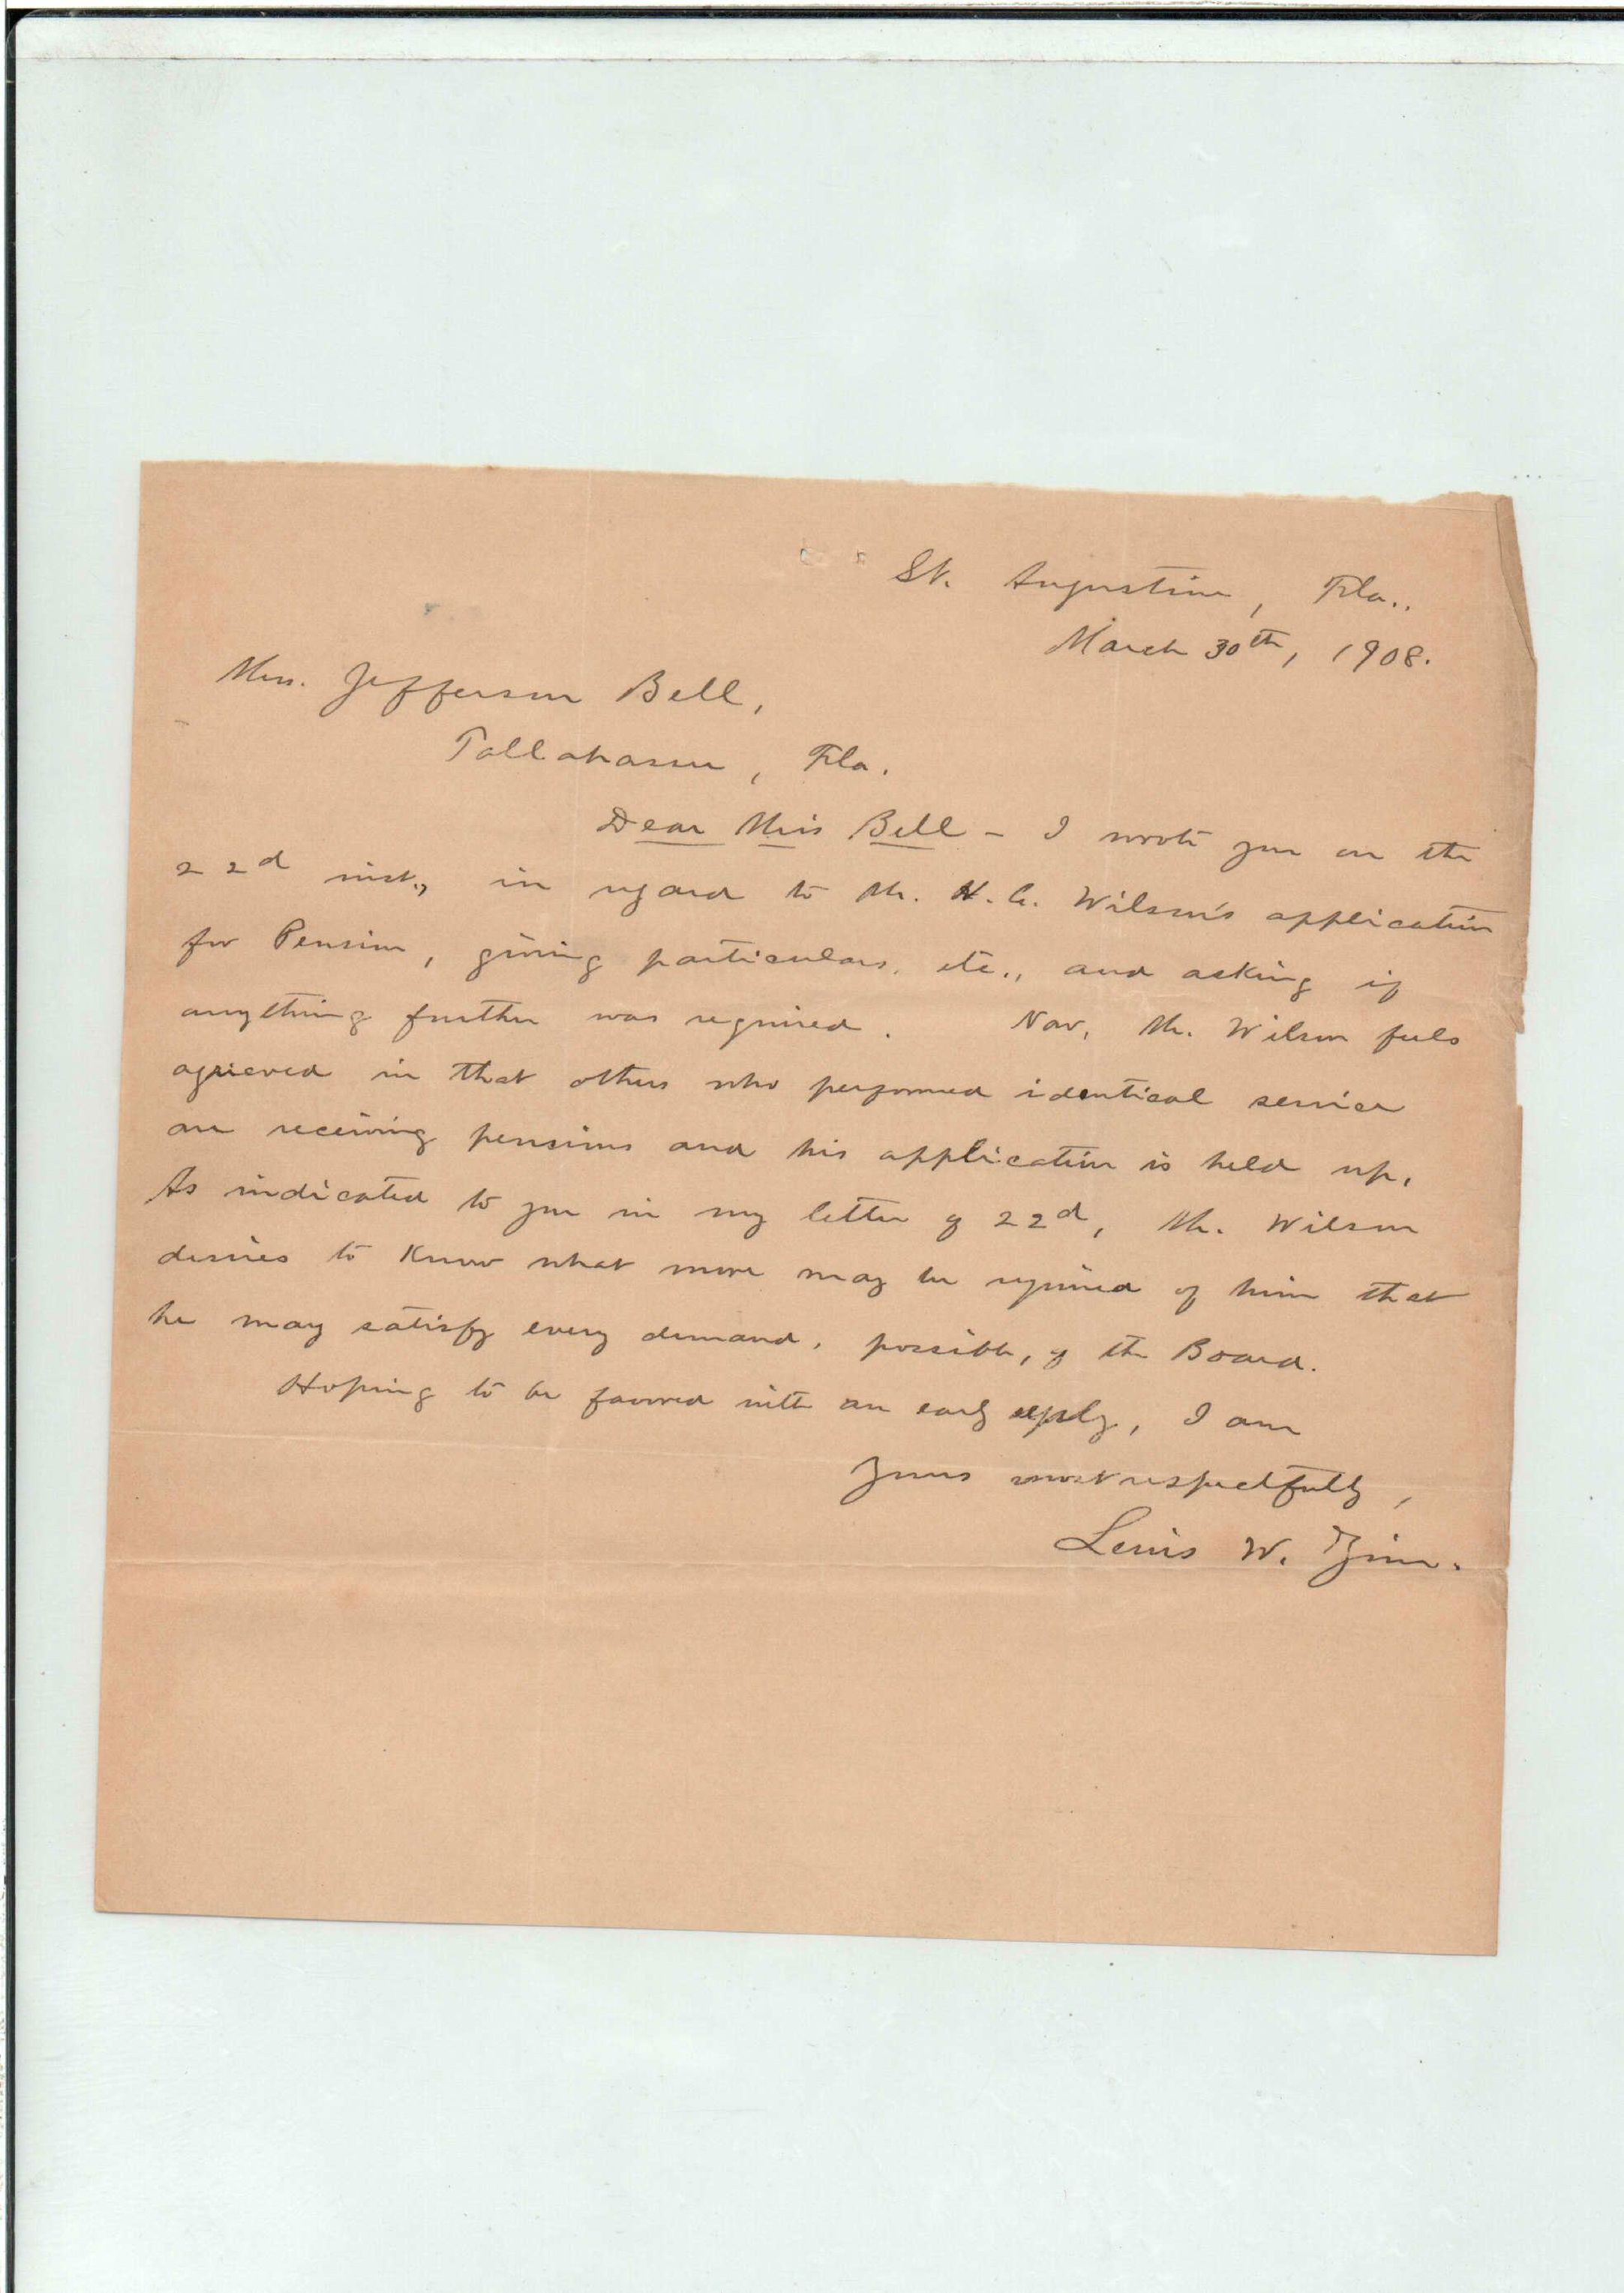 St. Augustine, Fla..
March 30th, 1908.
Miss. Jefferson Bell,
Tallahassee, Fla.
Dear Miss Bell - I wrote you on the
22d inst., in regard to Mr. H. C. Wilson's application
for Pension, giving particulars, etc., and asking if
anything further was required. Now, Mr. Wilson feels
agrieved in that others who performed identical service
are receiving pensions and his application is held up.
As indicated to you in my letter of 22d, Mr. Wilson
desires to know what more may be required of him that
he may satisfy every demand, possible, of the Board.
Hoping to be favored with an early reply, I am
Yours most respectfully,
Lewis W. Zim.